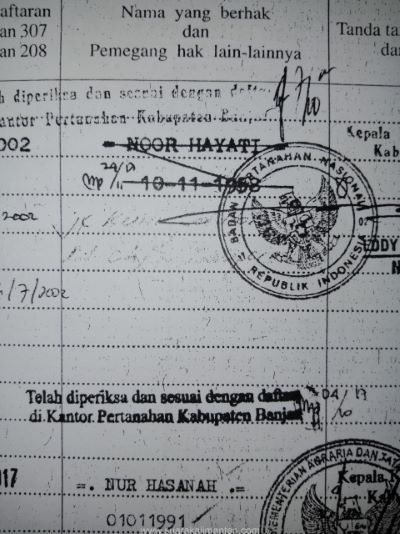 aftaran
an 307
an 208
Nama yang berhak
dan
Pemegang hak lain-lainnya
Tanda ta
da
h diperiksa dan sesuai dengan dafta
antor Pertanahan Kabupaten Ban
002
= NOOR HAYATI =
Kepala
Kab
10-11-1958
2002
BADAN PERTANAHAN NASIONAL
REPUBLIK INDONESIA
EDDY
N
/7/2002
Telah diperiksa dan sesuai dengan daftar
di Kantor Pertanahan Kabupaten Banjar
017
=. NUR HASANAH .=
01011991
KEMENTERIAN AGRARIA DAN TA
Kepala K
Kab